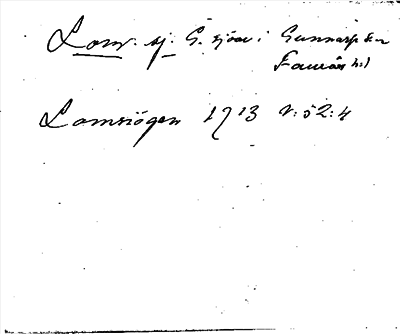 Lom. sj. G. sjöar i Gunnarp sn
Faurås hd
Lomsiögen 1713 V:52:4